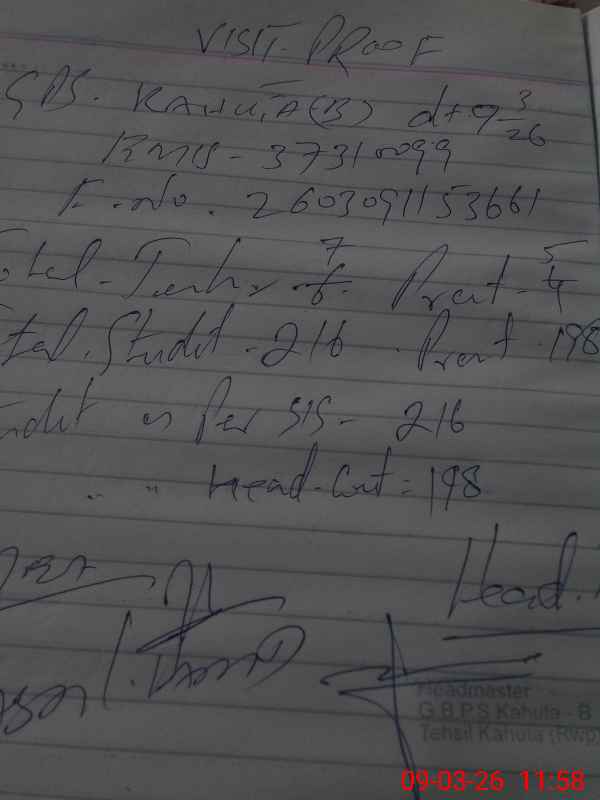 VISIT. PROOF
GPS. KAHUTA(B) dt 9 3/26
EMIS - 37310099
F. No. 2603091153661
7 5
Total - Teacher 6. Prent - 4
Total. Studet - 216. Prent. 198
Studet as Per SIS - 216
" " Head-Cout = 198
Head.
Headmaster
G.B.P.S Kahuta - B
Tehsil Kahuta (Rwp)
09-03-26 11:58